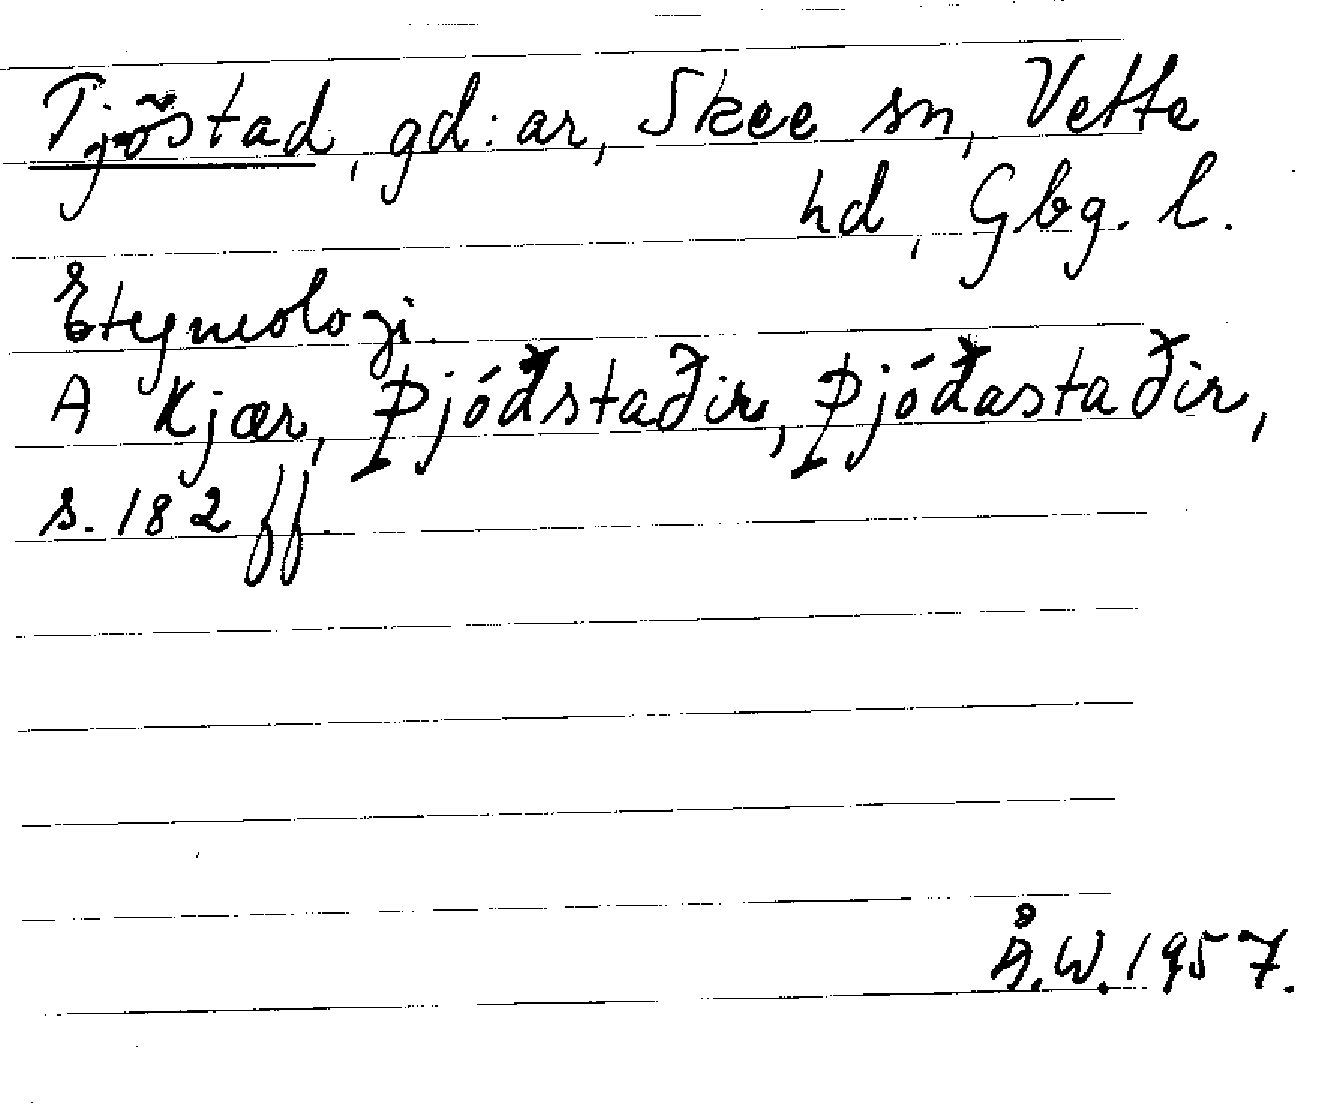 Tjöstad, gd:ar, Skee sn, Vette
hd, Gbg. l.
Etymologi.
A Kjær, Þjóðstaðir, Þjóðastaðir,
s. 182 ff.
Å.W. 1957.